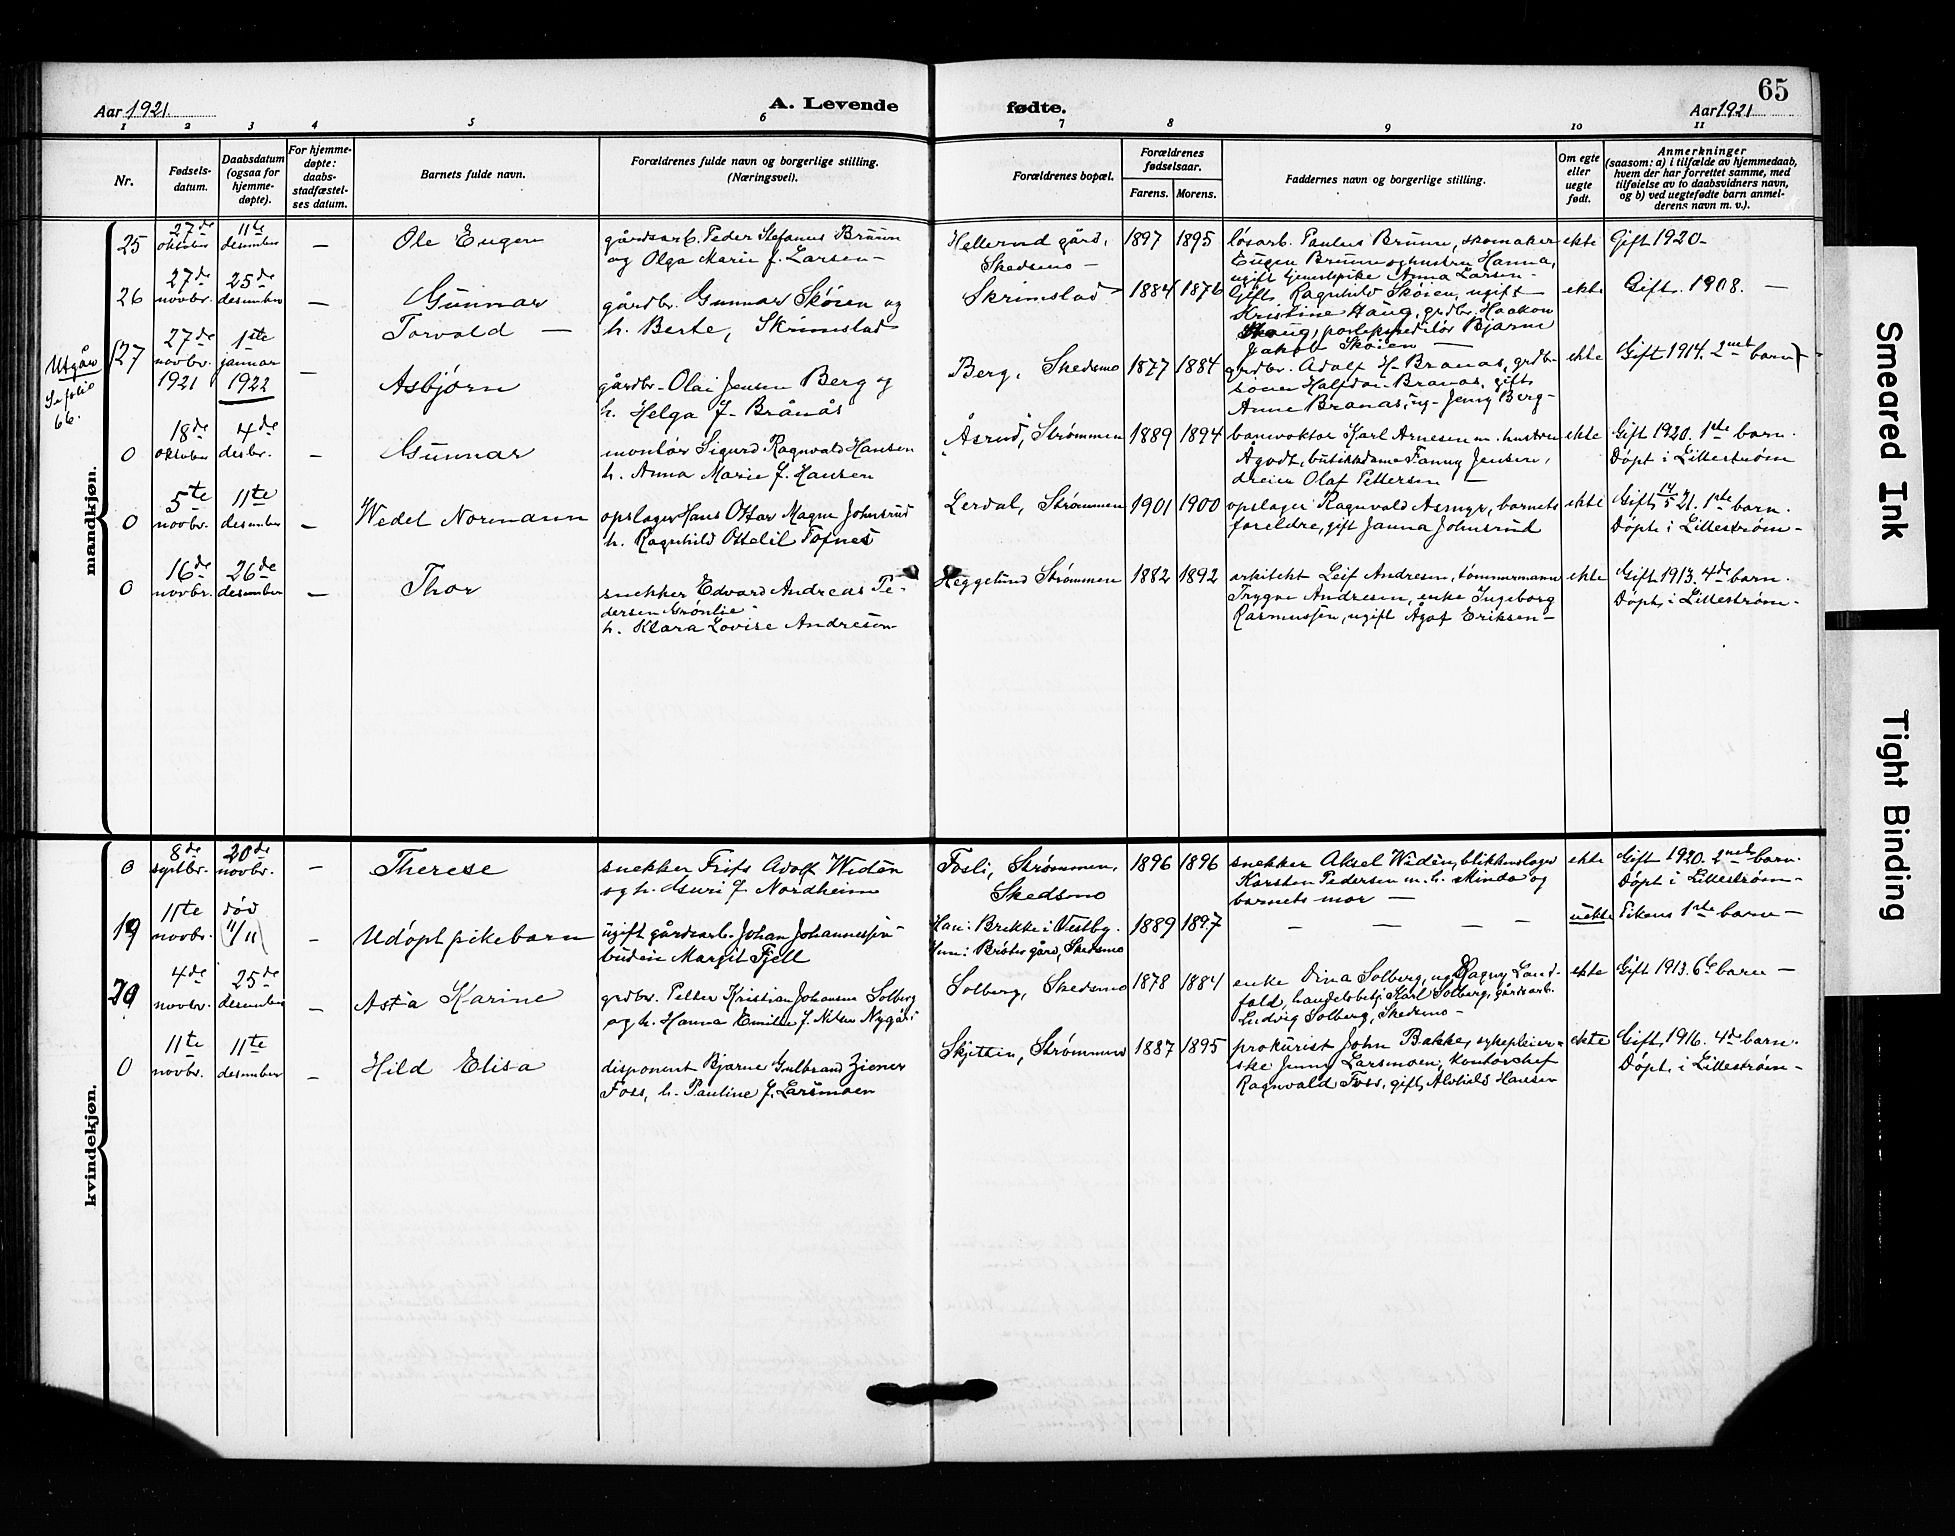 65
Aar 1921.
A. Levende
fødte.
Aar 1921
1 2 3 4 5 6 7 8 9 10 11
Nr.
Fødsels-
datum.
Daabsdatum
(ogsaa for
hjemme-
døpte).
For hjemme-
døpte:
daabs-
stadfæstel-
ses datum.
Barnets fulde navn.
Forældrenes fulde navn og borgerlige stilling.
(Næringsvei).
Forældrenes bopæl.
Forældrenes
fødselsaar.
Farens. Morens.
Faddernes navn og borgerlige stilling.
Om egte
eller
uegte
født.
Anmerkninger
(saasom: a) i tilfælde av hjemmedaab,
hvem der har forrettet samme, med
tilføielse av to daabsvidners navn,
og b) ved uegtefødte barn anmel-
derens navn m. v.).
mandkjøn.
25
27de
oktober
11te
desember
—
Ole Eugen
gårdsarb. Peder Stefanus Bruun
og Olga Marie f. Larsen —
Hellerud gård,
Skedsmo —
1897 1895
løsarb. Paulus Bruun, skomaker
Eugen Bruun og hustru Hanna,
ugift tjenestepike Anna Larsen —
ekte
Gift 1920 —
26
27de
novbr.
25de
desember
—
Gunnar
Torvald —
gårdbr. Gunnar Skøien og
h. Berte, Skrimstad
Skrimstad —
1884 1876
Gift Ragnhild Skøien, ugift
Kristine Haug, grdbr. Haakon
Haug, postekspeditør Bjarne
Jakob Skøien —
ekte
Gift 1908. —
Utgår
Se folio
66.
27
27de
novbr.
1921
1ste
januar
1922
—
Asbjørn
gårdbr. Olai Jensen Berg og
h. Helga f. Brånås
Berg, Skedsmo
1877 1884
grdbr. Adolf H. Branas, grdbr.
sønn Halfdan Branas, gift
Anne Branas, ug. Jenny Berg —
ekte
Gift 1914. 2net barn
0
18de
oktober
4de
desbr.
—
Gunnar
montør Sigurd Ragnvald Hansen
h. Anna Marie f. Hansen
Åsrud, Strømmen
1889 1894
banevokter Karl Arnesen m. hustru
Ågodt, butikkdame Fanny Jensen,
dreier Olaf Pettersen —
ekte
Gift 1920. 1ste barn.
Døpt i Lillestrøm
0
5te
novbr.
11te
desember
—
Wedel Normann
opslager Hans Ottar Magne Johnsrud
h. Ragnhild Ottelil Tofnes
Lerdal, Strømmen
1901 1900
opslager Ragnvald Asmyr, barnets
foreldre, gift Janna Johnsrud
ekte
Gift 14/5 21. 1ste barn.
Døpt i Lillestrøm —
0
16de
novbr.
26de
desember
—
Thor
snekker Edvard Andreas Pe-
dersen Grønlie
h. Klara Lovise Andresen
Heggelund Strømmen
1882 1892
arkitekt Leif Andresen, tømmermann
Trygve Andresen, enke Ingeborg
Rasmussen, ugift Ågot Eriksen —
ekte
Gift 1913. 4de barn.
Døpt i Lillestrøm —
kvindekjøn.
0
8de
septbr.
20de
novbr.
—
Therese
snekker Frits Adolf Widen
og h. Guri f. Nordheim
Fosli, Strømmen,
Skedsmo
1896 1896
snekker Aksel Widen, blikkenslager
Karsten Pedersen m. h. Minda og
barnets mor —
ekte
Gift 1920. 2net barn.
Døpt i Lillestrøm —
19
11te
novbr.
død
(11/11)
—
Udøpt pikebarn
ugift gårdsarb. Johan Johannessen
budeie Margit Fjell
Han: Brekke i Vestby.
Hun: Bråter gård, Skedsmo
1889 1897
— — — —
uekte
Pikens 1ste barn —
20
4de
novbr.
25de
desember
—
Asta Karine
grdbr. Petter Kristian Johansen Solberg
og h. Hanna Emilie f. Nilsen Nygård
Solberg, Skedsmo
1878 1884
enke Dina Solberg, ug. Dagny Land-
fald, handelsbetj. Karl Solberg, gårdsarb.
Ludvig Solberg, Skedsmo —
ekte
Gift 1913. 6te barn —
0
11te
novbr.
11te
desember
—
Hild Elisa
disponent Bjarne Gulbrand Ziener
Foss, h. Pauline f. Larsmoen
Skjettin, Strømmen
1887 1895
prokurist John Bakke, sykepleier-
ske Jenny Larsmoen, kontorchef
Ragnvald Foss, gift Alvhild Hansen
ekte
Gift 1916. 4de barn.
Døpt i Lillestrøm —
Smeared Ink
Tight Binding